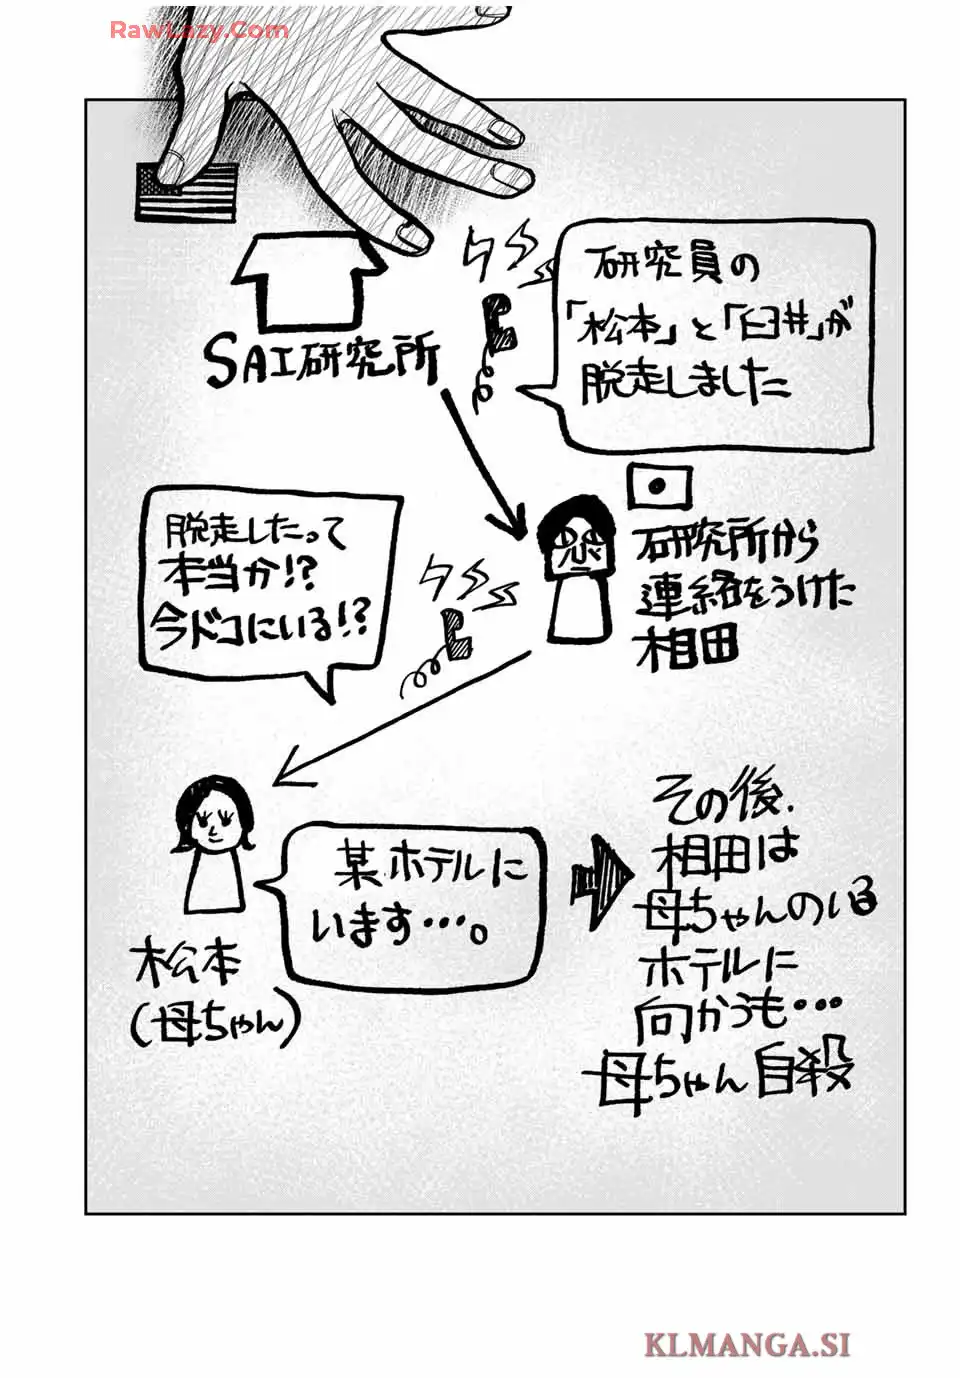 RawLazy.Com
研究員の
「松本」と「臼井」が
脱走しました
SAI研究所
研究所から
連絡をうけた
相田
脱走したって
本当か!?
今ドコにいる!?
某ホテルに
います…。
松本
(母ちゃん)
その後、
相田は
母ちゃんのいる
ホテルに
向かうも…
母ちゃん自殺
KLMANGA.SI